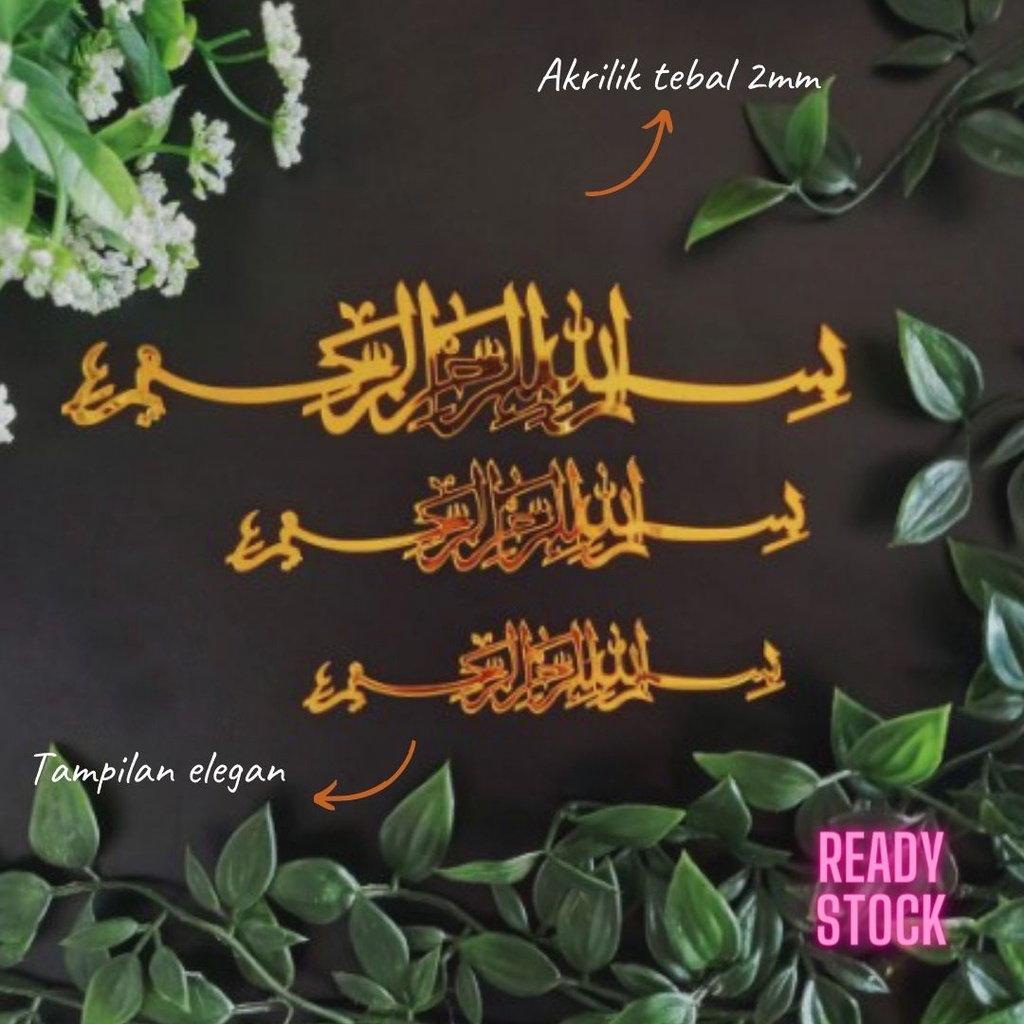 Akrilik tebal 2mm
بسم الله الرحمن الرحيم
بسم الله الرحمن الرحيم
بسم الله الرحمن الرحيم
Tampilan elegan
READY
STOCK